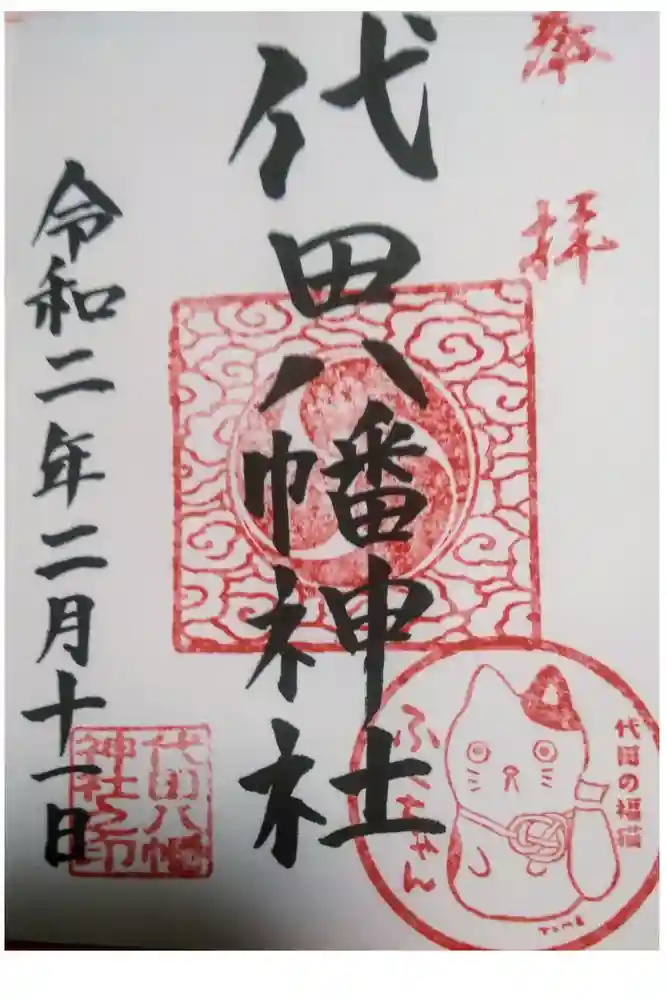 奉拝
代田八幡神社
令和二年二月十一日
代田八幡
神社之印
代田の福猫
ふくちゃん
TOME